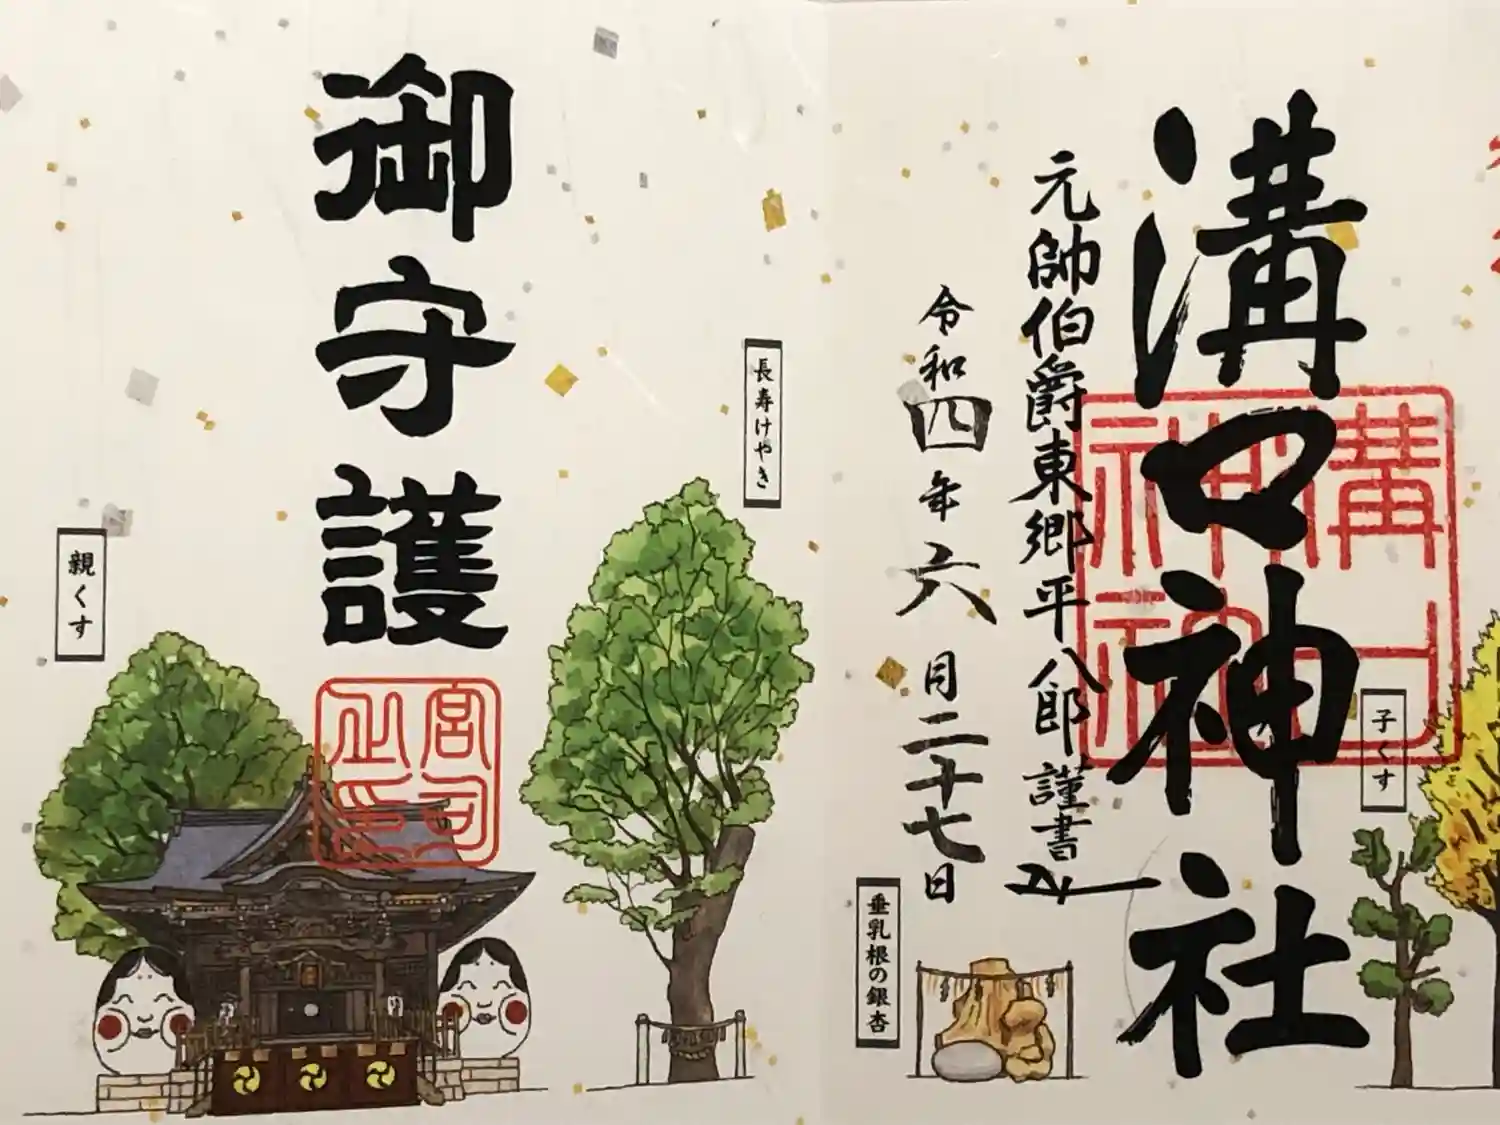 溝口神社
元帥伯爵東郷平八郎謹書
令和四年六月二十七日
溝口
神社
子くす
垂乳根の銀杏
長寿けやき
御守護
宮司
之印
親くす